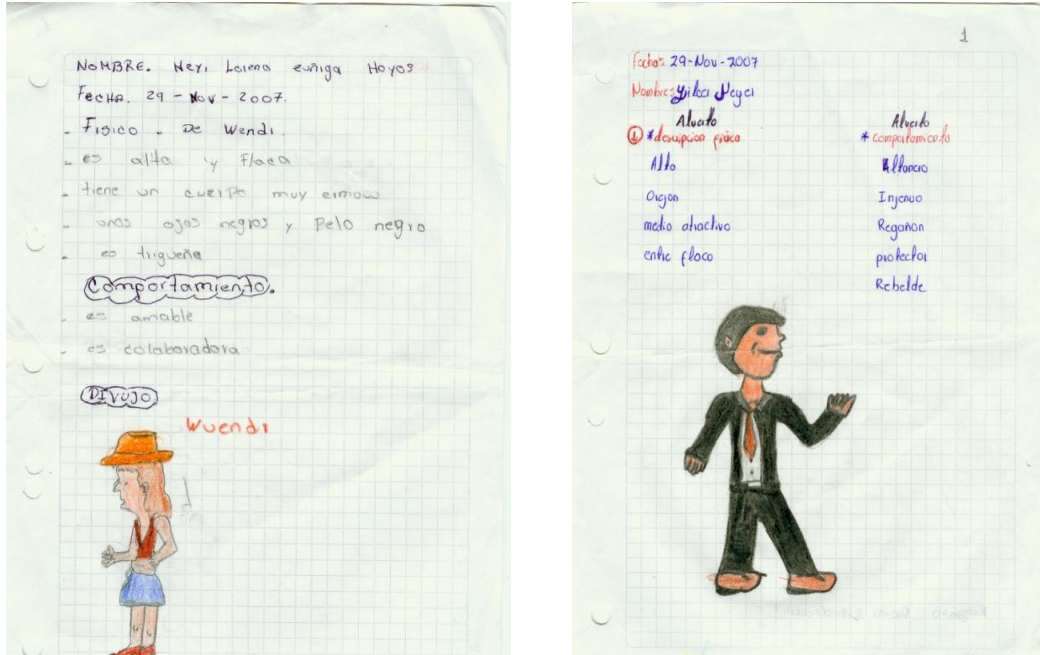 NOMBRE. Neyi Lorena zuñiga Hoyos
FECHA. 29 - Nov - 2007.
- Fisico - De Wendi.
- es alta y Flaca
- tiene un cuerpo muy ermoso
unos ojos negros y Pelo negro
- es trigueña
Comportamiento.
- es amable
- es colaboradora
DIVUJO
Wuendi
1
Fecha: 29-Nov-2007
Nombre:
Alvarito
1 *descripcion fisica
Alto
Orejon
medio atractivo
entre flaco
Alvarito
* comportamiento
Altancio
Injenuo
Regañon
protector
Rebelde